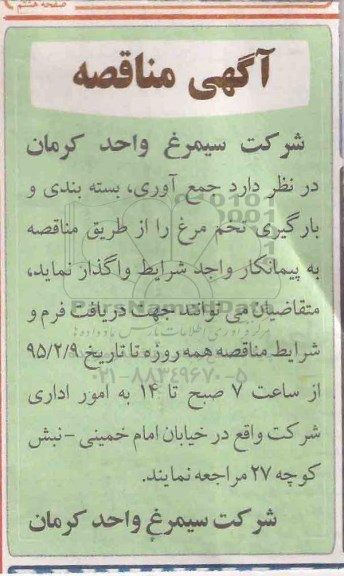 صفحه هشتم
آگهی مناقصه
شرکت سیمرغ واحد کرمان
در نظر دارد جمع آوری، بسته بندی و
بارگیری تخم مرغ را از طریق مناقصه
به پیمانکار واجد شرایط واگذار نماید،
متقاضیان می توانند جهت دریافت فرم و
شرایط مناقصه همه روزه تا تاریخ ۹۵/۲/۹
از ساعت ۷ صبح تا ۱۴ به امور اداری
شرکت واقع در خیابان امام خمینی - نبش
کوچه ۲۷ مراجعه نمایند.
شرکت سیمرغ واحد کرمان
ParsNamadData
۰۲۱-۸۸۳۴۹۶۷۰-۵